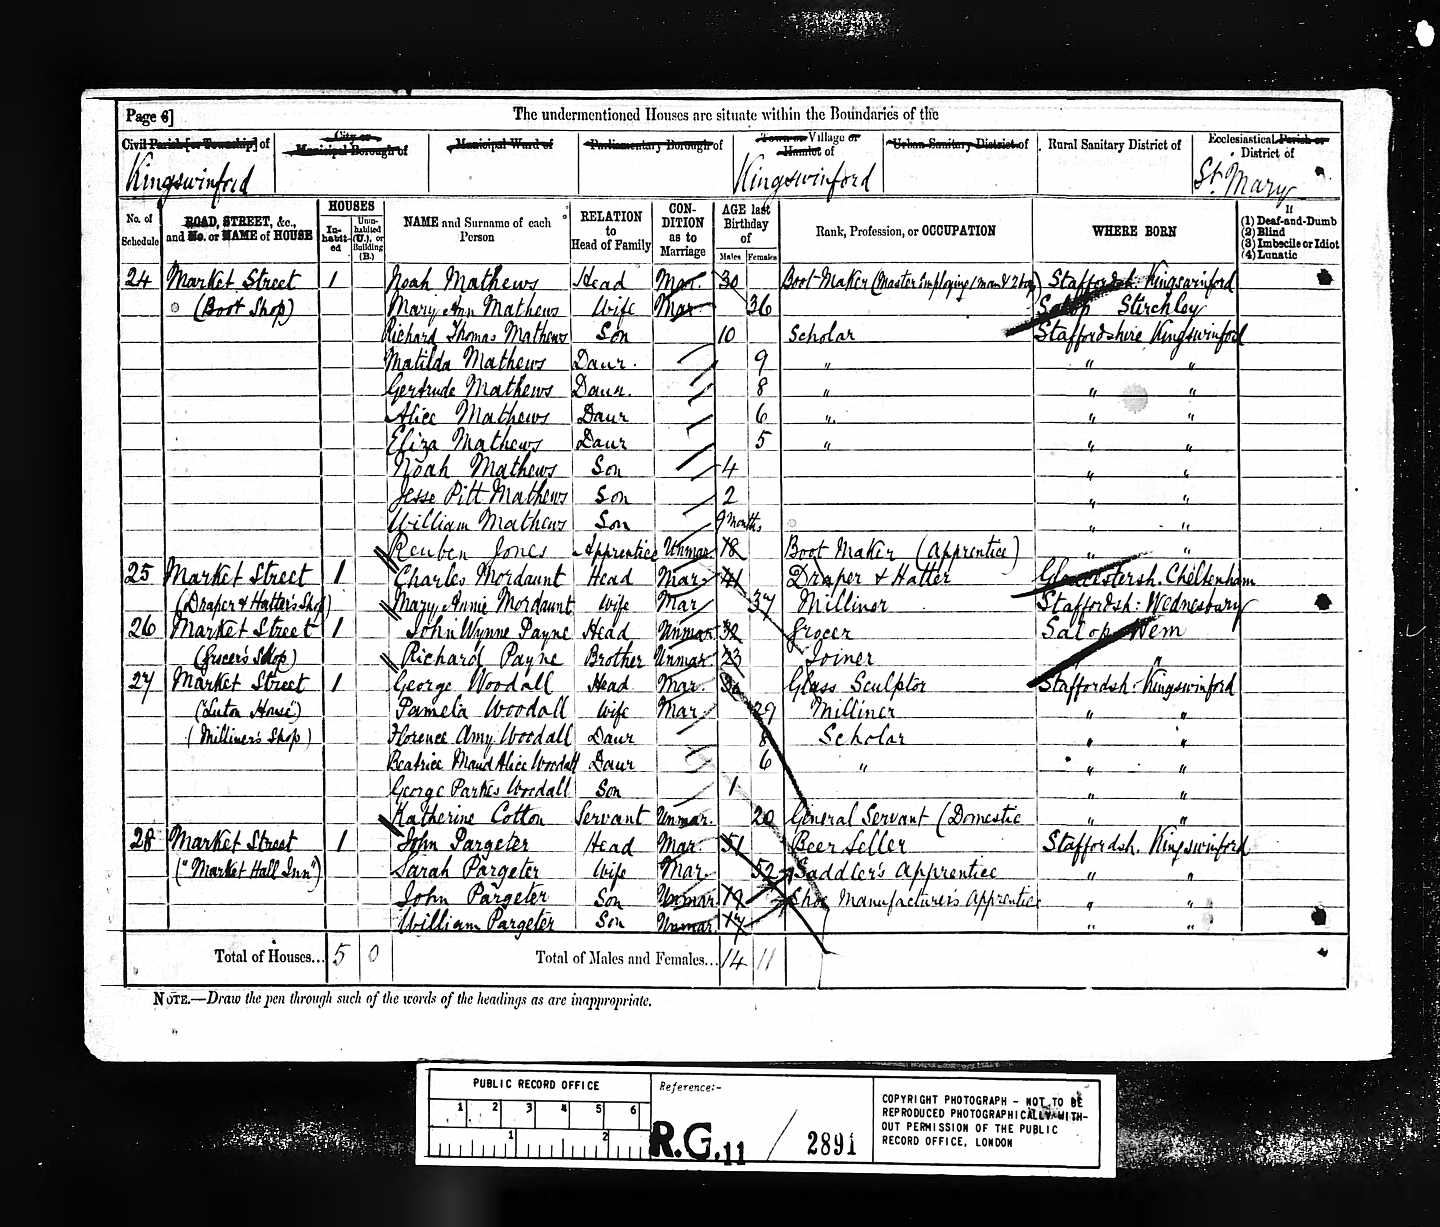 Page 6]
The undermentioned Houses are situate within the Boundaries of the
Civil Parish [or Township] of
City or Municipal Borough of
Municipal Ward of
Parliamentary Borough of
Town or Village or Hamlet of
Urban Sanitary District of
Rural Sanitary District of
Ecclesiastical Parish or District of
Kingswinford Kingswinford St. Mary
No. of Schedule
ROAD, STREET, &c., and No. or NAME of HOUSE
HOUSES
Inhabited
Uninhabited (U.), or Building (B.)
NAME and Surname of each Person
RELATION to Head of Family
CONDITION as to Marriage
AGE last Birthday of
Males Females
Rank, Profession, or OCCUPATION
WHERE BORN
If
(1) Deaf-and-Dumb
(2) Blind
(3) Imbecile or Idiot
(4) Lunatic
24 Market Street 1 Noah Mathews Head Mar. 30 Boot Maker (Master Employing 1 man & 2 boys) Staffordsh. Kingswinford
(Boot Shop) Mary Ann Mathews Wife Mar. 36 Salop Stirchley
Richard Thomas Mathews Son 10 Scholar Staffordshire Kingswinford
Matilda Mathews Daur. 9 " " "
Gertrude Mathews Daur. 8 " " "
Alice Mathews Daur 6 " " "
Eliza Mathews Daur 5 " " "
Noah Mathews Son 4 " "
Jesse Pitt Mathews Son 2 " "
William Mathews Son 9 months " "
Reuben Jones Apprentice Unmar 18 Boot Maker (Apprentice) " "
25 Market Street 1 Charles Mordaunt Head Mar. 41 Draper & Hatter Gloucestersh. Cheltenham
(Draper & Hatter's Shop) Mary Annie Mordaunt Wife Mar 37 Milliner Staffordsh: Wednesbury
26 Market Street 1 John Wynne Payne Head Unmar 32 Grocer Salop Wem
(Grocer's Shop) Richard Payne Brother Unmar. 23 Joiner " "
27 Market Street 1 George Woodall Head Mar. 30 Glass Sculptor Staffordsh: Kingswinford
("Luton House") Pamela Woodall Wife Mar. 29 Milliner " "
(Milliner's Shop) Florence Amy Woodall Daur 8 Scholar " "
Beatrice Maud Alice Woodall Daur 6 " " "
George Parkes Woodall Son 1 " "
Katherine Cotton Servant Unmar. 20 General Servant (Domestic " "
28 Market Street 1 John Pargeter Head Mar. 51 Beer Seller Staffordsh. Kingswinford
("Market Hall Inn") Sarah Pargeter Wife Mar. 52 Saddler's Apprentice " "
John Pargeter Son Unmar 19 Shoe Manufacturer's Apprentice " "
William Pargeter Son Unmar. 17 " "
Total of Houses... 5 0 Total of Males and Females... 14 11
NOTE.—Draw the pen through such of the words of the headings as are inappropriate.
PUBLIC RECORD OFFICE
1 2 3 4 5 6
1 2
Reference:-
R.G. 11 / 2891
COPYRIGHT PHOTOGRAPH - NOT TO BE
REPRODUCED PHOTOGRAPHICALLY WITH-
OUT PERMISSION OF THE PUBLIC
RECORD OFFICE, LONDON